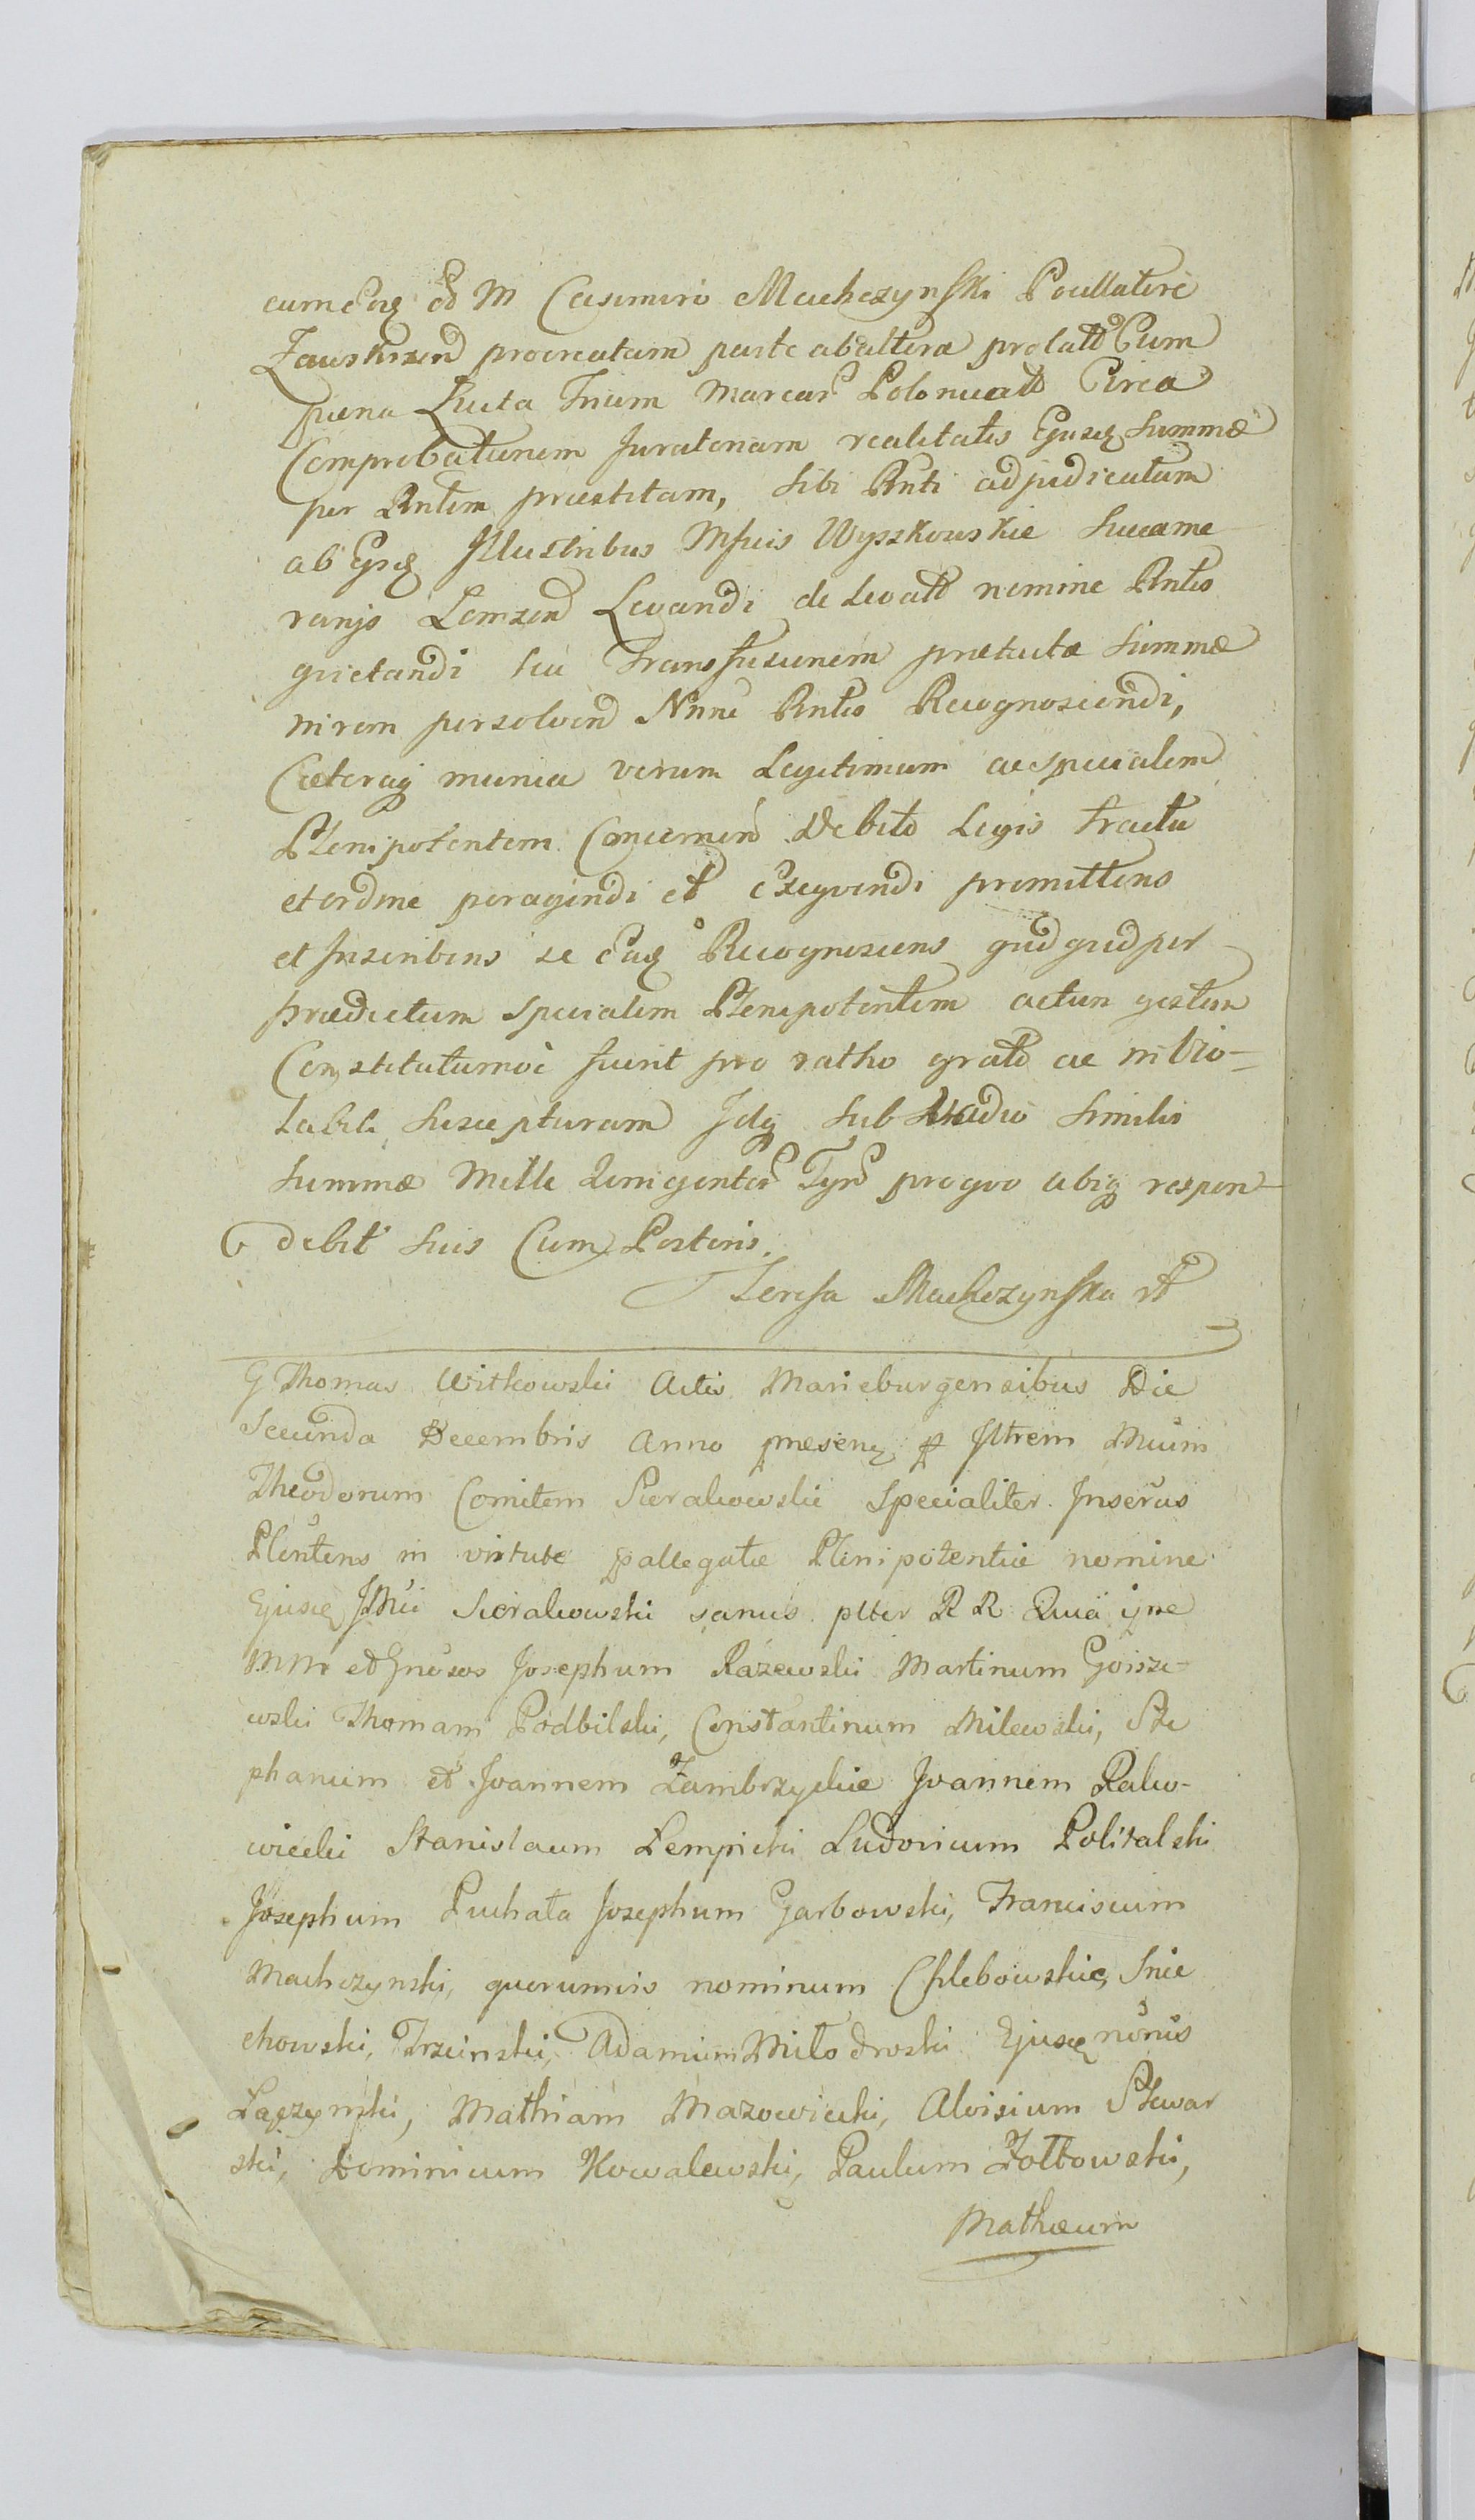 cum Eaq̃ et M Casimiro Machczynski Pocillatore
Zauskrzen procreatam parte ab altera prolatt Cum
pæna Lucta Trium Marcar Polonicatt Circa
Comprobationem Juratoriam realitatis Ejusq̃ Summæ
per Rntem præstitam, sibi Rnti adjudicatam
ab Ejsq̃ Illustribus Mficis Wyszkowskie Succame
rarijs Lomzen Levandi de levatt nomine Rntis
quietandi seu Transfusionem prætactæ Summæ
in rem persolven Nnne Rntis Recognoscendi,
Cæteraq̃ munia verum Legitimum ac specialem
Plenipotentem Concernen Debito Legis tractu
et ordine peragendi et exeqvendi promittens
et Inscribens se Eaq̃ Recognoscens quidquid per
prædictum specialem Plenipotentem actum gestum
Constitutumve fuerit pro ratho grato ac invio-
labili suscepturam Idq̃ sub Vadio similis
Summæ Mille Tyn pro qvo ubiq̃ respon-
debit suis Cum Posteris.
Teresa Machczynska
G Thomas Witkowski Actis Marieburgensibus Die
Secunda Decembris Anno præsenq̃ p Illtrem Mcium
Theodorum Comitem Sierakowski Specialiter Inserus
Plentens in virtute allegatæ Plenipotentiæ nomine
Ejusq̃ IMci Sierakowski sanus ptter R R Quia ipse
MM et Gnosos Josephum Razewski Martinum Goisze-
wski Thomam Podbilski, Constantinum Milewski, Ste
phanum et Joannem Zambrzyckie Joannem Rako-
wiecki Stanislaum Lempicki Ludovicum Politalski
Josephum Puchała Josephum Garbowski, Franciscum
Machczynski, quorumvis nominum Chlebowskie, Snie
chowski, Trzcinski, Adamum Miłodroski Ejusq̃ nonis
Łączynski, Mathiam Mazowiecki, Aloisium Skwar
ski, Dominicum Kowalewski, Paulum Żołtowski,
Mathæum